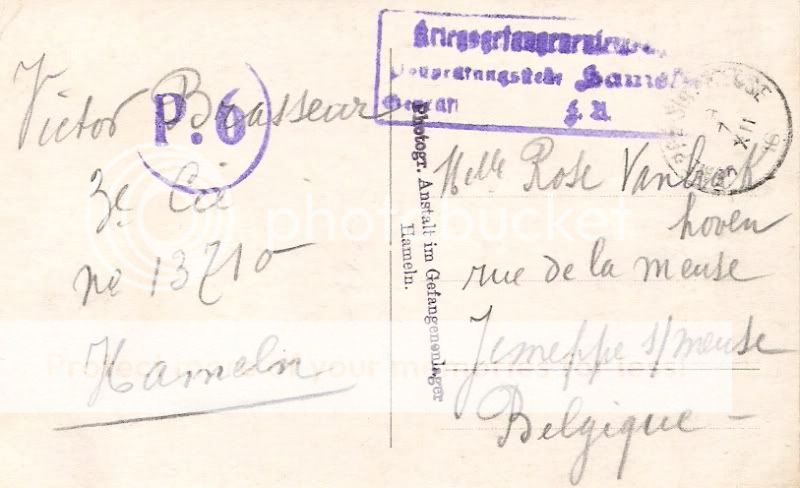 Victor Brasseur
3e Cie
no 13710
Hameln
P.6
Hameln
Geprüft
F. A.
Photogr. Anstalt im Gefangenenlager
Hameln.
XII
16
Melle Rose
hoven
rue de la meuse
Jemeppe s/meuse
Belgique -
photobucket
Protect more of your memories for less!